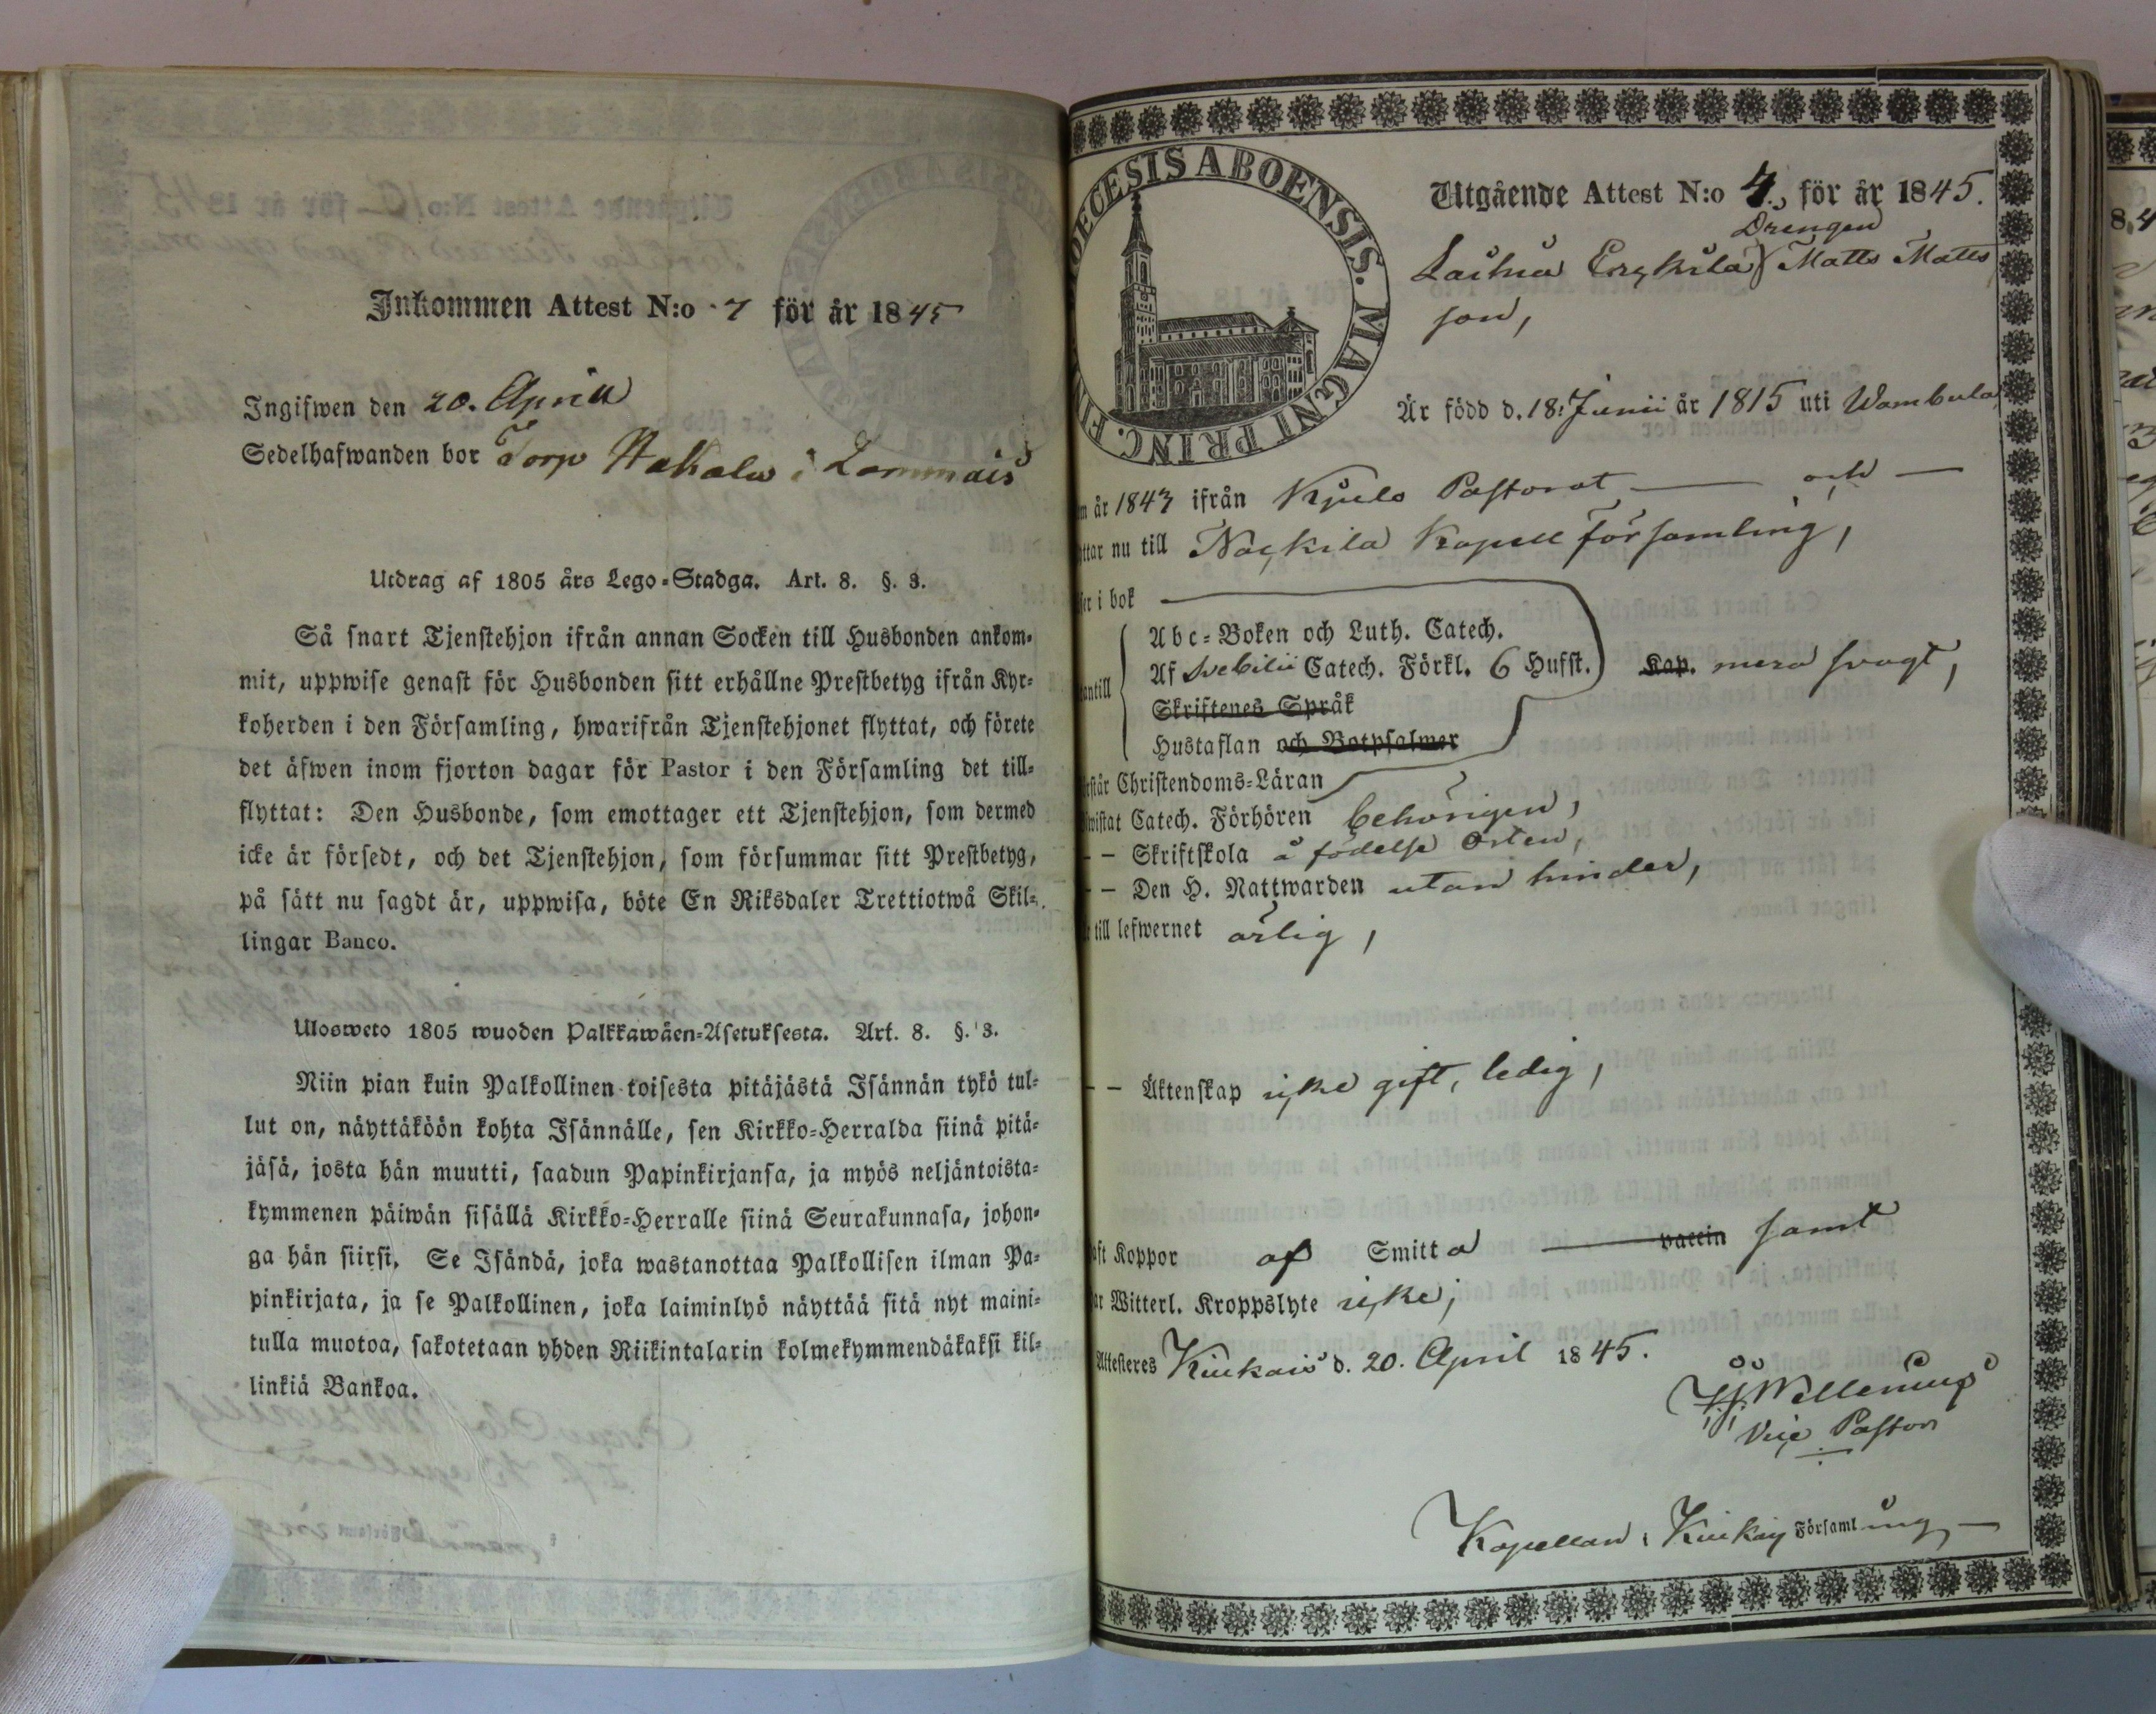 Inkommen Attest N:o 7 för år 1845
Ingifwen den 20. April
Sedelhafwanden bor Torp i Lammais
Utdrag af 1805 års Lego-Stadga. Art. 8. §. 3.
Så snart Tjenstehjon ifrån annan Socken till Husbonden ankom-
mit, uppwise genast för Husbonden sitt erhållne Prestbetyg ifrån Kyr-
koherden i den Församling, hwarifrån Tjenstehjonet flyttat, och förete
det äfwen inom fjorton dagar för Pastor i den Församling det till-
flyttat: Den Husbonde, som emottager ett Tjenstehjon, som dermed
icke är försedt, och det Tjenstehjon, som försummar sitt Prestbetyg,
på sätt nu sagdt är, uppwisa, böte En Riksdaler Trettiotwå Skil-
lingar Banco.
Ulosweto 1805 wuoden Palkkawäen-Asetuksesta. Art. 8. §. 3.
Niin pian kuin Palkollinen toisesta pitäjästä Isännän tykö tul-
lut on, näyttäköön kohta Isännälle, sen Kirkko-Herralda siinä pitä-
jäsä, josta hän muutti, saadun Papinkirjansa, ja myös neljäntoista-
kymmenen päiwän sisällä Kirkko-Herralle siinä Seurakunnasa, johon-
ga hän siirsi. Se Isändä, joka wastanottaa Palkollisen ilman Pa-
pinkirjata, ja se Palkollinen, joka laiminlyö näyttää sitä nyt maini-
tulla muotoa, sakotetaan yhden Riikintalarin kolmekymmendäkaksi kil-
linkiä Bankoa.
DIOECESIS ABOENSIS. MAGNI PRINC. FIN
Utgående Attest N:o 4. för år 1845.
Drengen
Matts Matts
son,
Är född d. 18: Junii år 1815 uti Wambula
år 1843 ifrån Kjulo Pastorat — och —
nu till Nackila Kapell församling,
i bok
Abc-Boken och Luth. Catech.
Af Svebilii Catech. Förkl. 6 Hufst. Kap. mera svagt,
Skriftenes Språk
Hustaflan och Botpsalmer
Christendoms-Läran
Catech. Förhören behörigen,
— Skriftskola å födelse Orten,
— Den H. Nattwarden utan hinder,
till lefwernet ärlig,
— Äktenskap icke gift, ledig,
Koppor af Smitta — vaccin samt
Witterl. Kroppslyte icke;
Attesteres Kiukais d. 20. April 1845.
Vice Pastor
Kapellan i Kiukais Församling —